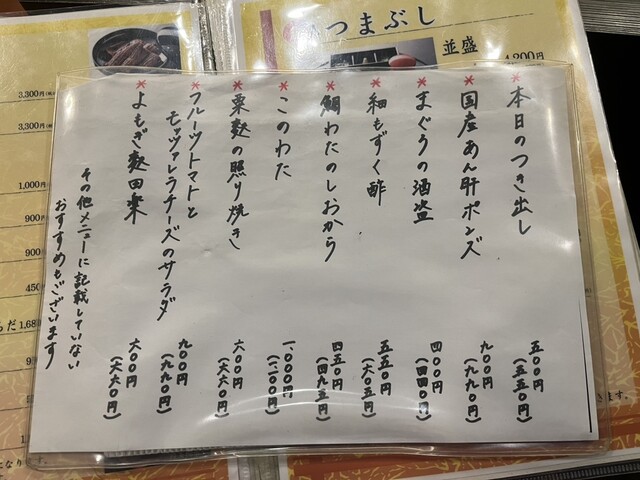 つまぶし
並盛
4,200円
＊本日のつき出し 五〇〇円(五五〇円)
＊国産あん肝ポンズ 九〇〇円(九九〇円)
＊まぐろの酒盗 四〇〇円(四四〇円)
＊細もずく酢 五五〇円(六〇五円)
＊鯛わたのしおから 四五〇円(四九五円)
＊このわた 一、〇〇〇円(一、一〇〇円)
＊粟麩の照り焼き 六〇〇円(六六〇円)
＊フルーツトマトと
モッツァレラチーズのサラダ 九〇〇円(九九〇円)
＊よもぎ麩田楽 六〇〇円(六六〇円)
その他メニューに記載していない
おすすめもございます
3,300円
3,300円
1,000円
900円
900
450
だ 1,68